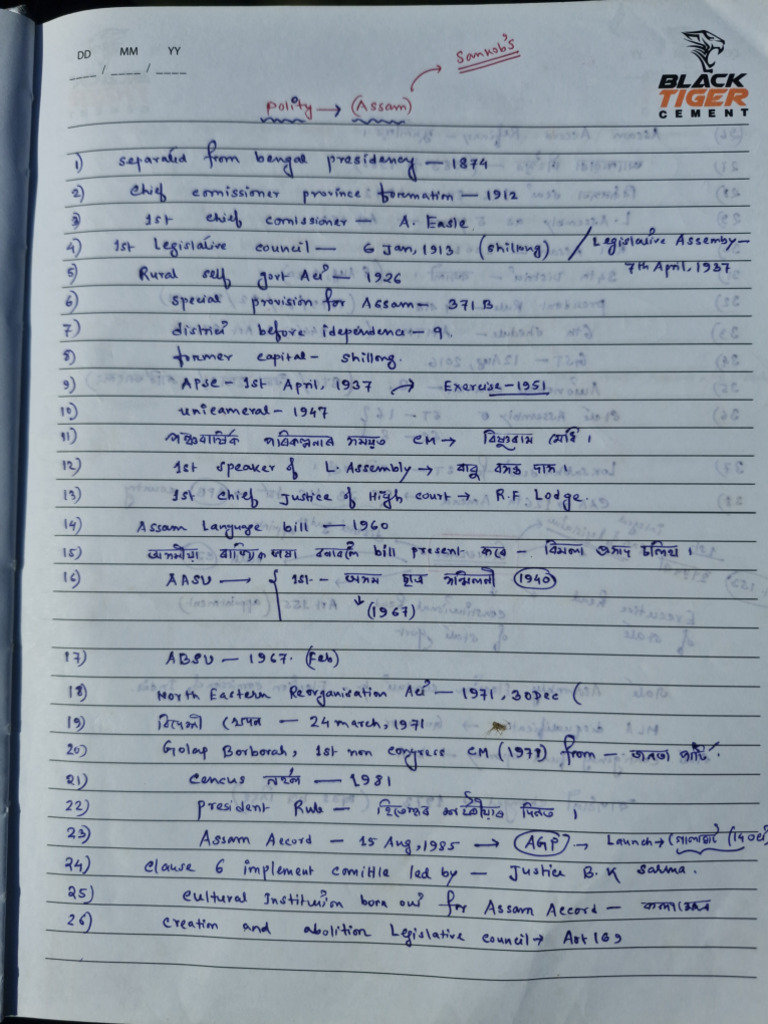 DD MM YY
___ / ____ / ____
BLACK
TIGER
CEMENT
Sankob's
Polity → (Assam)
1) Separated from bengal presidency — 1874
2) Chief comissioner province formation — 1912
3) 1st chief comissioner — A. Easle
4) 1st Legislative council — 6 Jan, 1913 (Shillong) / Legislative Assemby — 7th April, 1937
5) Rural self govt Act — 1926
6) special provision for Assam — 371 B
7) district before idependence — 9.
8) former capital — Shillong.
9) APSC — 1st April, 1937 → Exercise — 1951
10) unicameral — 1947
11) পঞ্চবাৰ্ষিক পৰিকল্পনাৰ সময়ত CM → বিষ্ণুৰাম মেধি।
12) 1st speaker of L. Assembly → বাবু বসন্ত দাস।
13) 1st chief Justice of High court → R.F Lodge
14) Assam Language bill — 1960
15) অসমীয়া ৰাজ্যিক ভাষা বনাবলৈ bill present কৰে — বিমলা প্ৰসাদ চলিহা।
16) AASU → { 1st — অসম ছাত্ৰ সন্মিলনী (1940)
↓
(1967)
17) ABSU — 1967. (Feb)
18) North Eastern Reorganisation Act — 1971, 30 Dec (
19) — 24 march, 1971
20) Golap Borborah, 1st non congress CM (1978) from — জনতা পাৰ্টি
21) Cencus নহ'ল — 1981
22) president Rule — হিতেশ্বৰ শইকীয়াৰ দিনত।
23) Assam Accord — 15 Aug, 1985 → (AGP) → Launch → (গোলাঘাট (14 Oct)
24) Clause 6 implement comittle led by — Justice B. K Sarma.
25) Cultural Institution born out for Assam Accord — কলাক্ষেত্ৰ
26) Creation and abolition Legislative council → Art 169